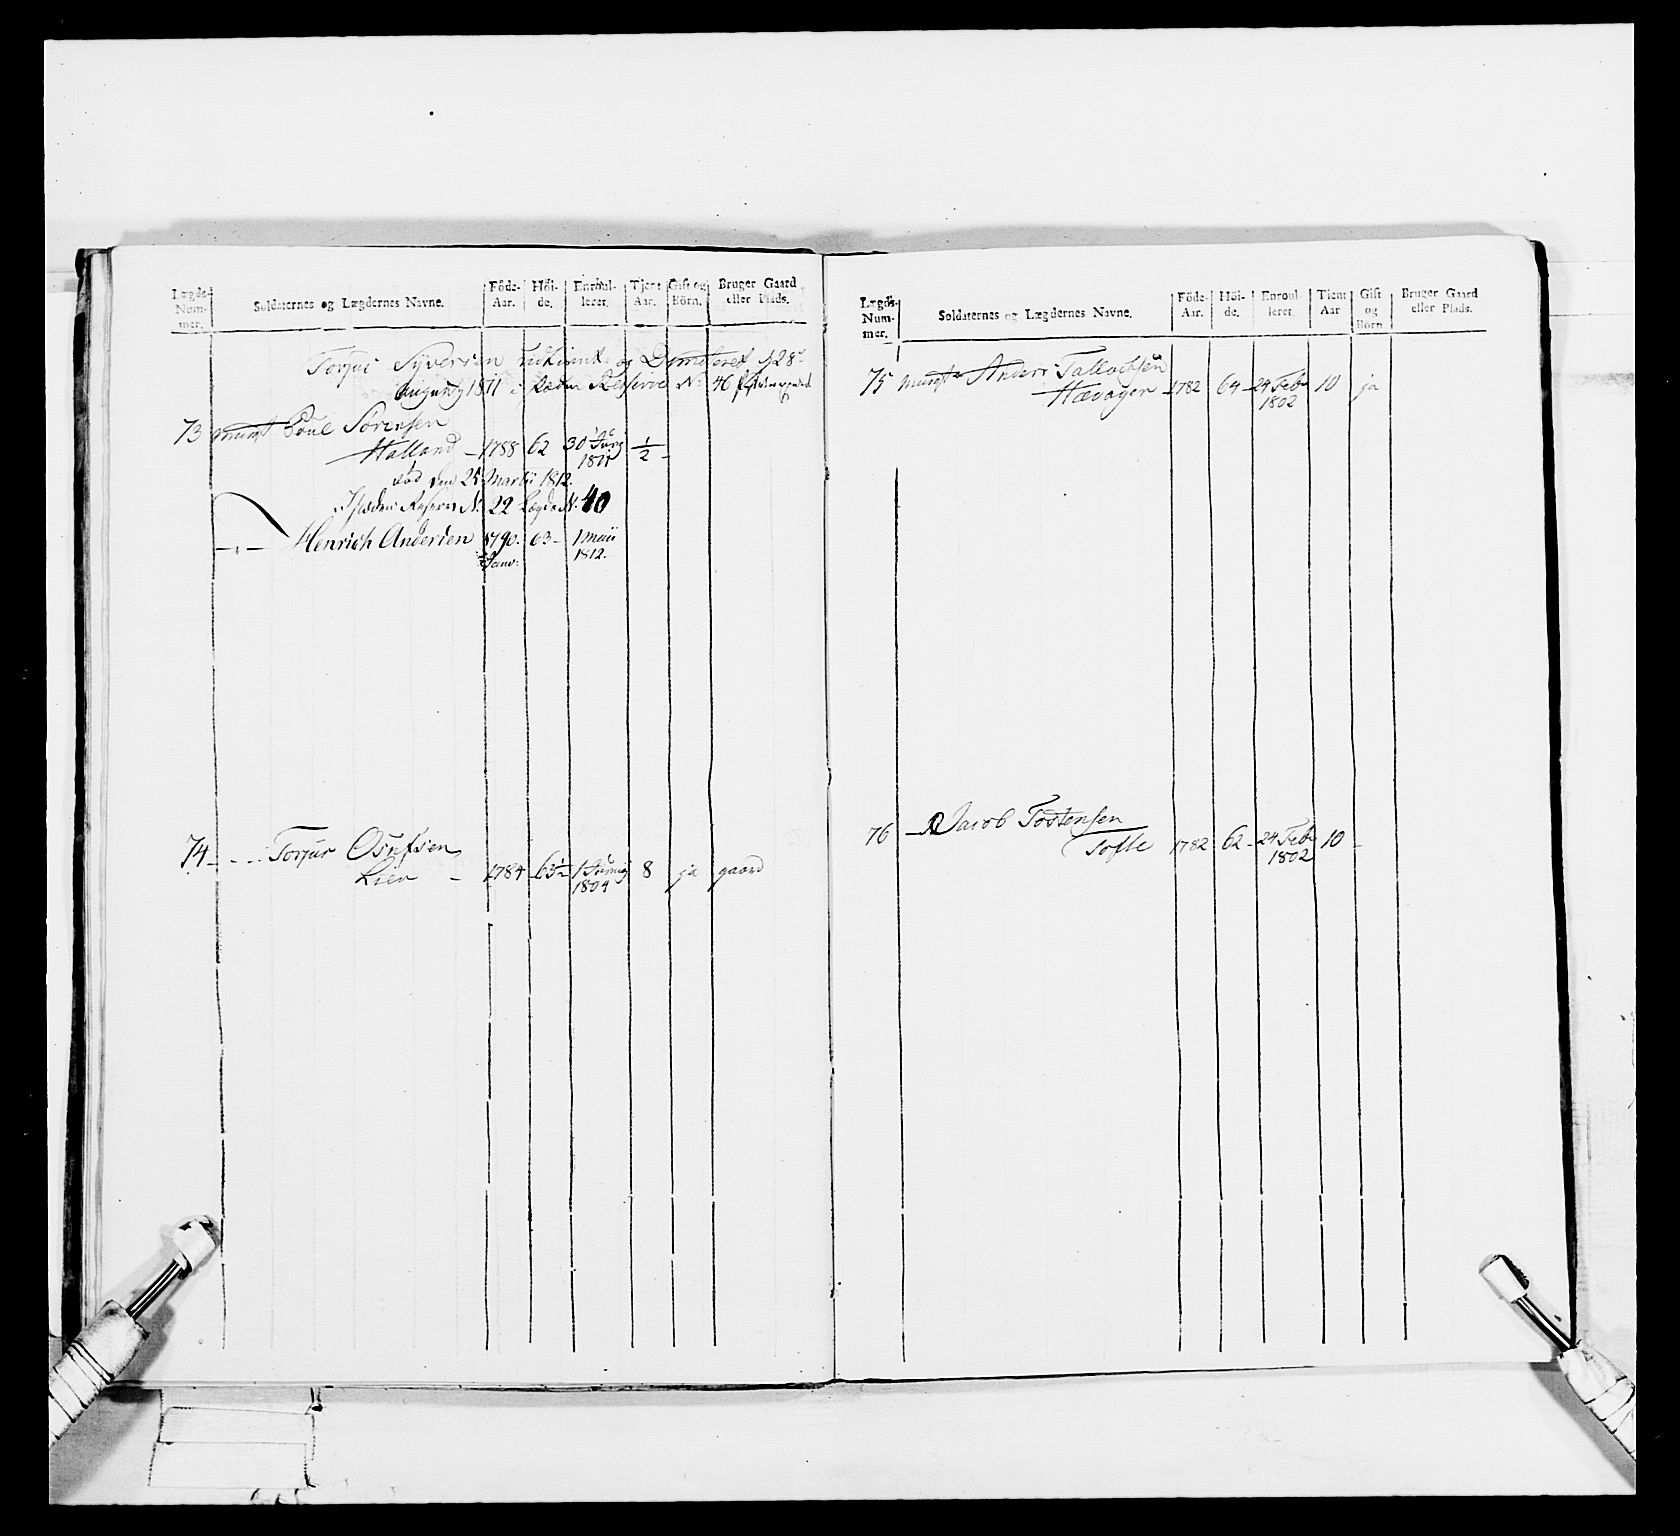 Lægds-
Num-
mer.
Soldaternes og Lægdernes Navne.
Föde-
Aar.
Höi-
de.
Enroul-
lerer.
Tjent
Aar.
Gift og
Börn.
Bruger Gaard
eller Plads.
Torjus Syversen udtient og Dimiteret d 28de
Augusty 1811 isteden Reserve No 46
73 mungt Poul Sörensen
Halland - 1788 62 30 Juny 1/2 -
1811
död den 25 Martii 1812.
Isteden Reserve N: 22 Lægde N: 40
-"- Henrich Andersen 1790. 63- 1 Maii
Janv: 1812.
74 - - - Torjus Osufsen
Lien - 1784 63 1/2 1 Juny 8 ja gaard
1804
Lægds-
Num-
mer.
Soldaternes og Lægdernes Navne.
Föde-
Aar.
Höi-
de.
Enroul-
lerer
Tient
Aar
Gift
og
Börn
Bruger Gaard
eller Plads.
75 mungt Anders Tallevsen
Hævager 1782 64 - 24 Febr 10 ja
1802
76 - Jacob Tostensen
Tofte 1782 62 - 24 Febr 10 -
1802